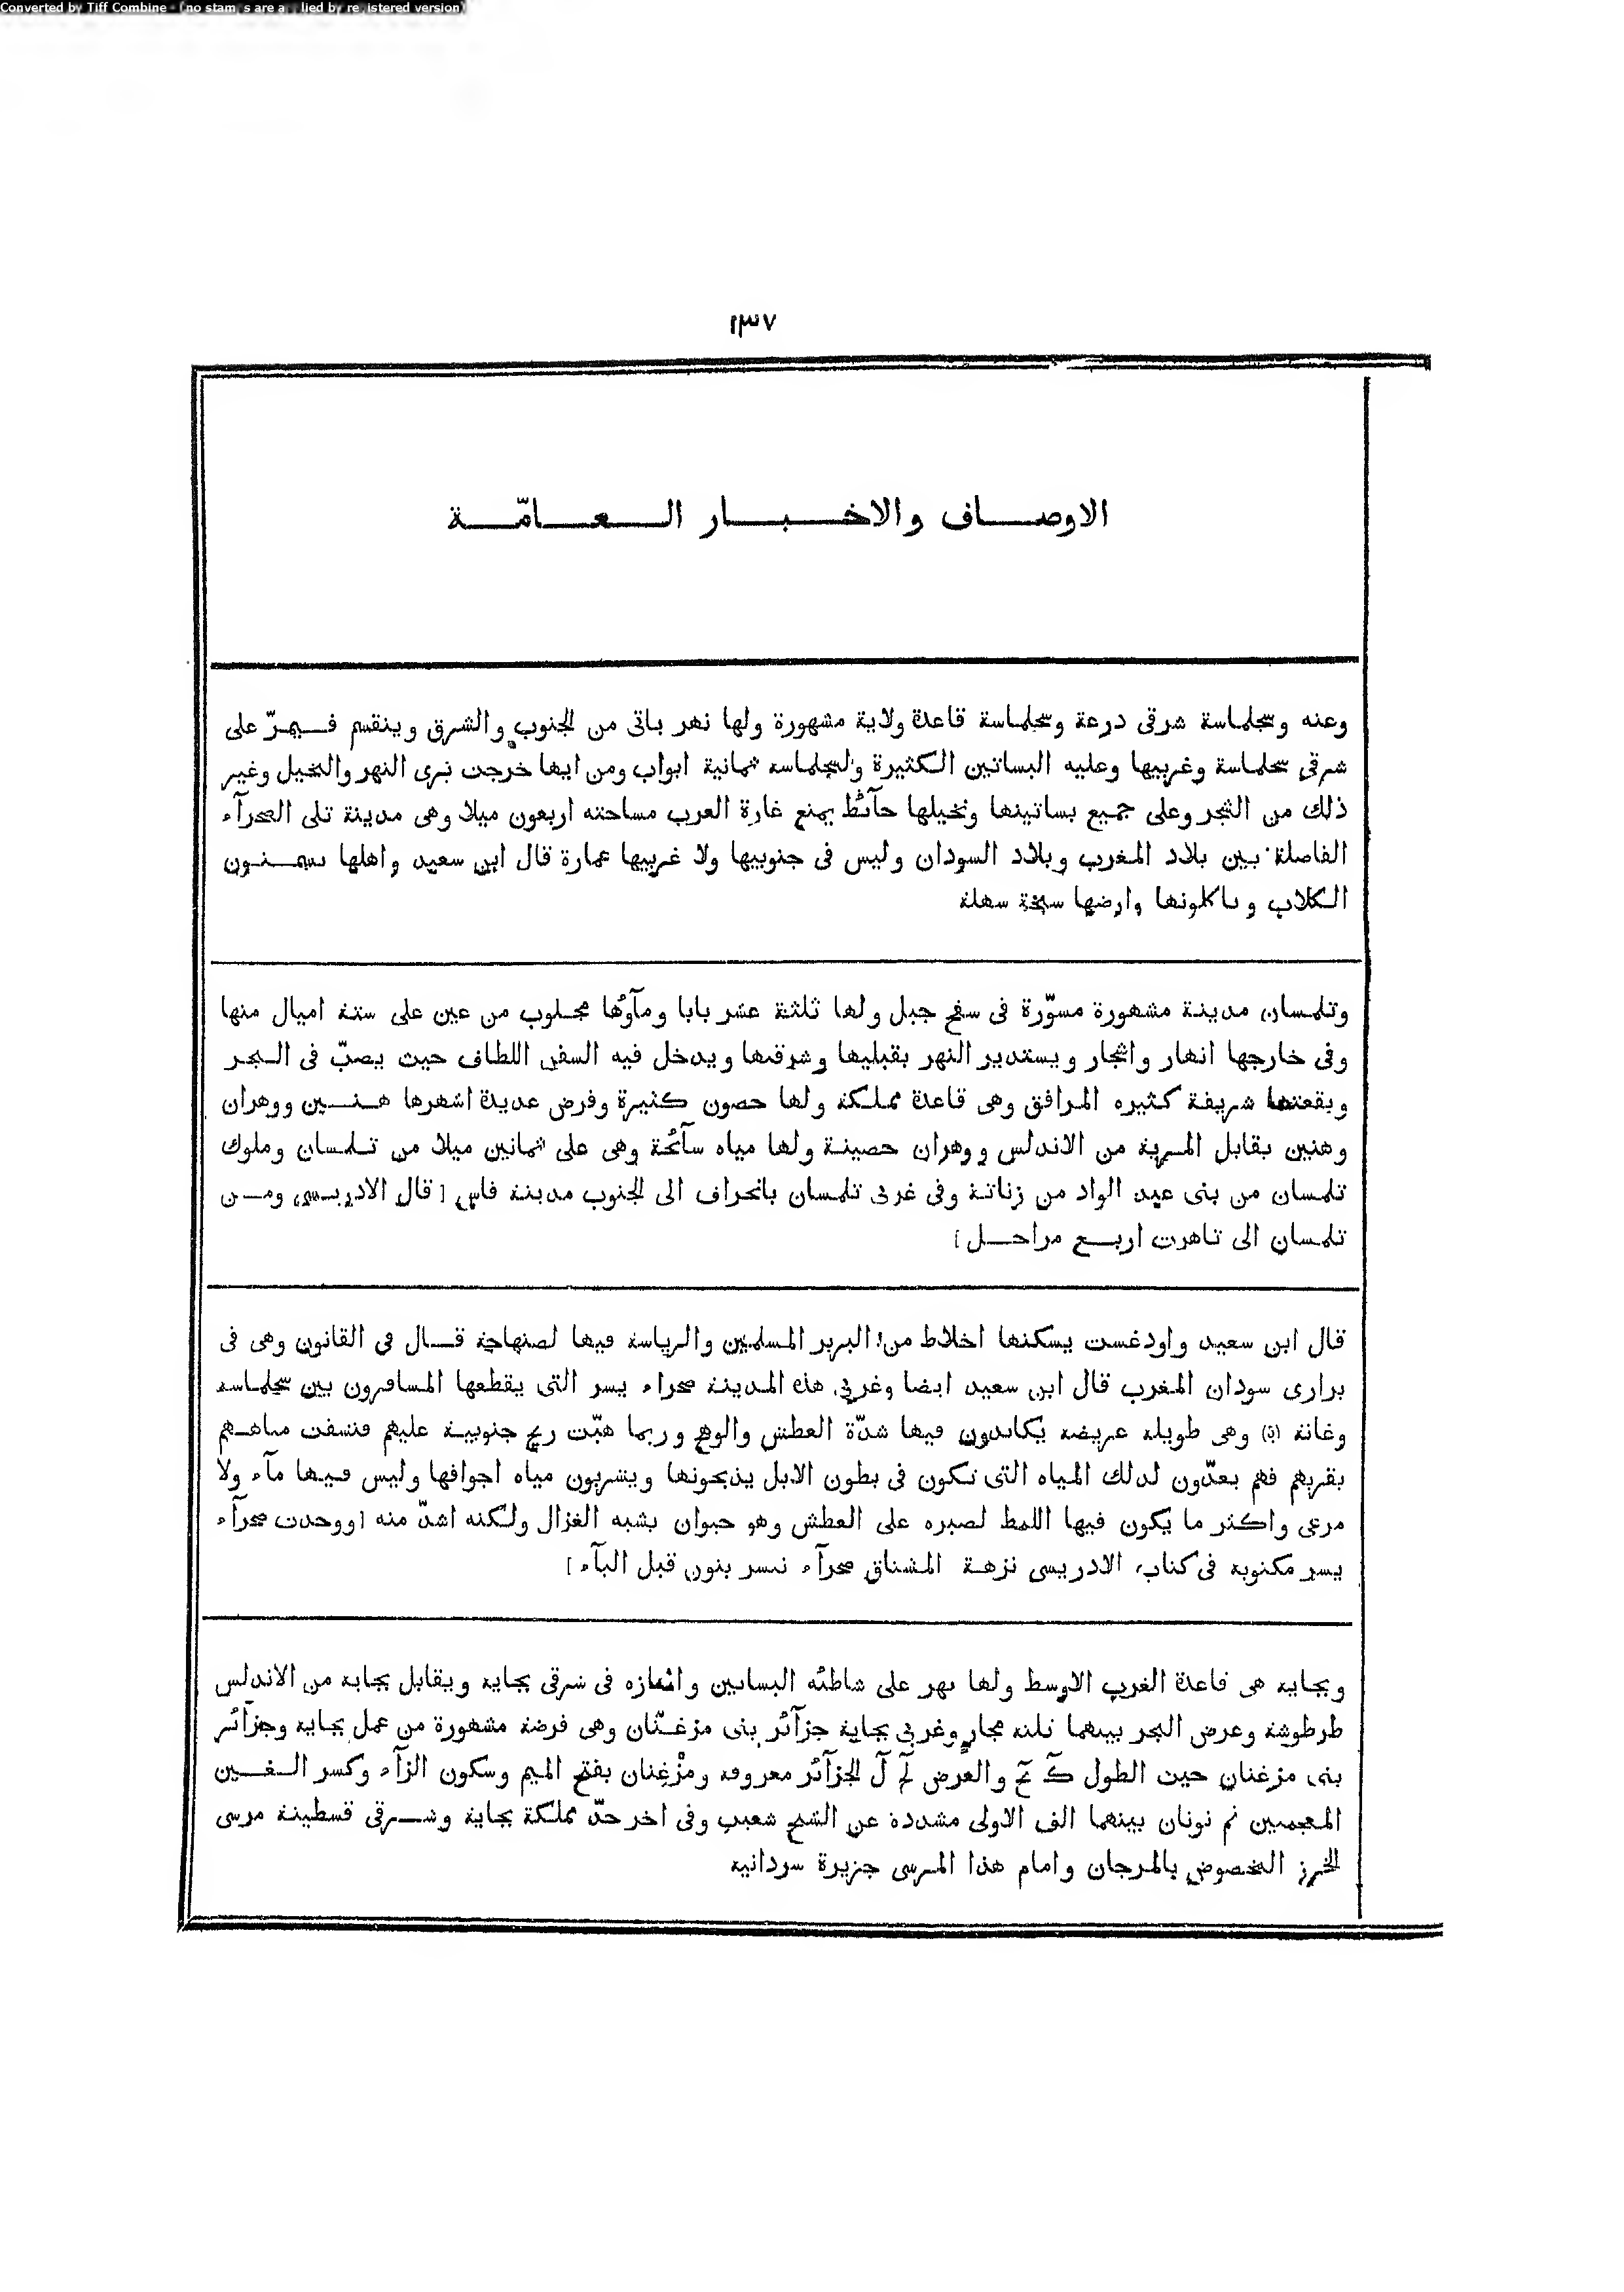 Converted by Tiff Combine - (no stamps are applied by registered version)
١٣٧
الاوصاف والاخبار العامّة
وعنه وسجلماسة شرقى درعة وسجلماسة قاعدة ولاية مشهورة ولها نهر ياتى من الجنوب والشرق وينقسم فيمرّ على
شرقى سجلماسة وغربيها وعليه البساتين الكثيرة ولسجلماسة ثمانية ابواب ومن ايها خرجت ترى النهر والنخيل وغير
ذلك من الشجر وعلى جميع بساتينها ونخيلها حآئط يمنع غارة العرب مساحته اربعون ميلا وهى مدينة تلى الصحرآء
الفاصلة بين بلاد المغرب وبلاد السودان وليس فى جنوبيها ولا غربيها عمارة قال ابن سعيد واهلها يسمنون
الكلاب وياكلونها وارضها سبخة سهلة
وتلمسان مدينة مشهورة مسوّرة فى سفح جبل ولها ثلثة عشر بابا ومآوُها مجلوب من عين على ستة اميال منها
وفى خارجها انهار واشجار ويستدير النهر بقبليها وشرقيها ويدخل فيه السفن اللطاف حيث يصبّ فى البحر
وبقعتها شريفة كثيره المرافق وهى قاعدة مملكة ولها حصون كثيرة وفرض عديدة اشهرها هنين ووهران
وهنين يقابل المرية من الاندلس ووهران حصينة ولها مياه سآئحة وهى على ثمانين ميلا من تلمسان وملوك
تلمسان من بنى عبد الواد من زناتة وفى غربى تلمسان بانحراف الى الجنوب مدينة فاس [قال الادريسى ومن
تلمسان الى تاهرت اربع مراحل]
قال ابن سعيد واودغست يسكنها اخلاط من البربر المسلمين والرياسة فيها لصنهاجة قال فى القانون وهى فى
برارى سودان المغرب قال ابن سعيد ايضا وغربى هذه المدينة صحراء يسر التى يقطعها المسافرون بين سجلماسة
وغانة وهى طويلة عريضة يكابدون فيها شدّة العطش والوهج وربما هبّت ريح جنوبية عليهم فنشفت مياههم
بقربهم فهم يعدّون لذلك المياه التى تكون فى بطون الابل يذبحونها ويشربون مياه اجوافها وليس فيها مآء ولا
مرعى واكثر ما يكون فيها اللمط لصبره على العطش وهو حيوان يشبه الغزال ولكنه اشدّ منه [ووجدت صحرآء
يسر مكتوبة فى كتاب الادريسى نزهة المشتاق صحرآء نيسر بنون قبل اليآء]
وبجاية هى قاعدة الغرب الاوسط ولها نهر على شاطئه البساتين والمنازه فى شرقى بجاية ويقابل بجاية من الاندلس
طرطوشة وعرض البحر بينهما ثلثة مجارٍ وغربى بجاية جزآئر بنى مزغنّان وهى فرضة مشهورة من عمل بجاية وجزآئر
بنى مزغنان حيث الطول والعرض الجزآئر معروفة ومزْغِنان بفتح الميم وسكون الزآء وكسر الغين
المعجمتين ثم نونان بينهما الف الاولى مشددة عن الشيخ شعيب وفى اخر حدّ مملكة بجاية وشرقى قسطينة مرسى
الخرز المخصوص بالمرجان وامام هذا المرسى جزيرة سردانية